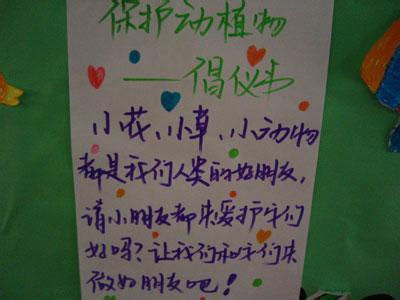 保护动植物
——倡仪书
小花、小草、小动物
都是我们人类的好朋友,
请小朋友都来爱护它们
好吗?让我们和它们来
做好朋友吧!